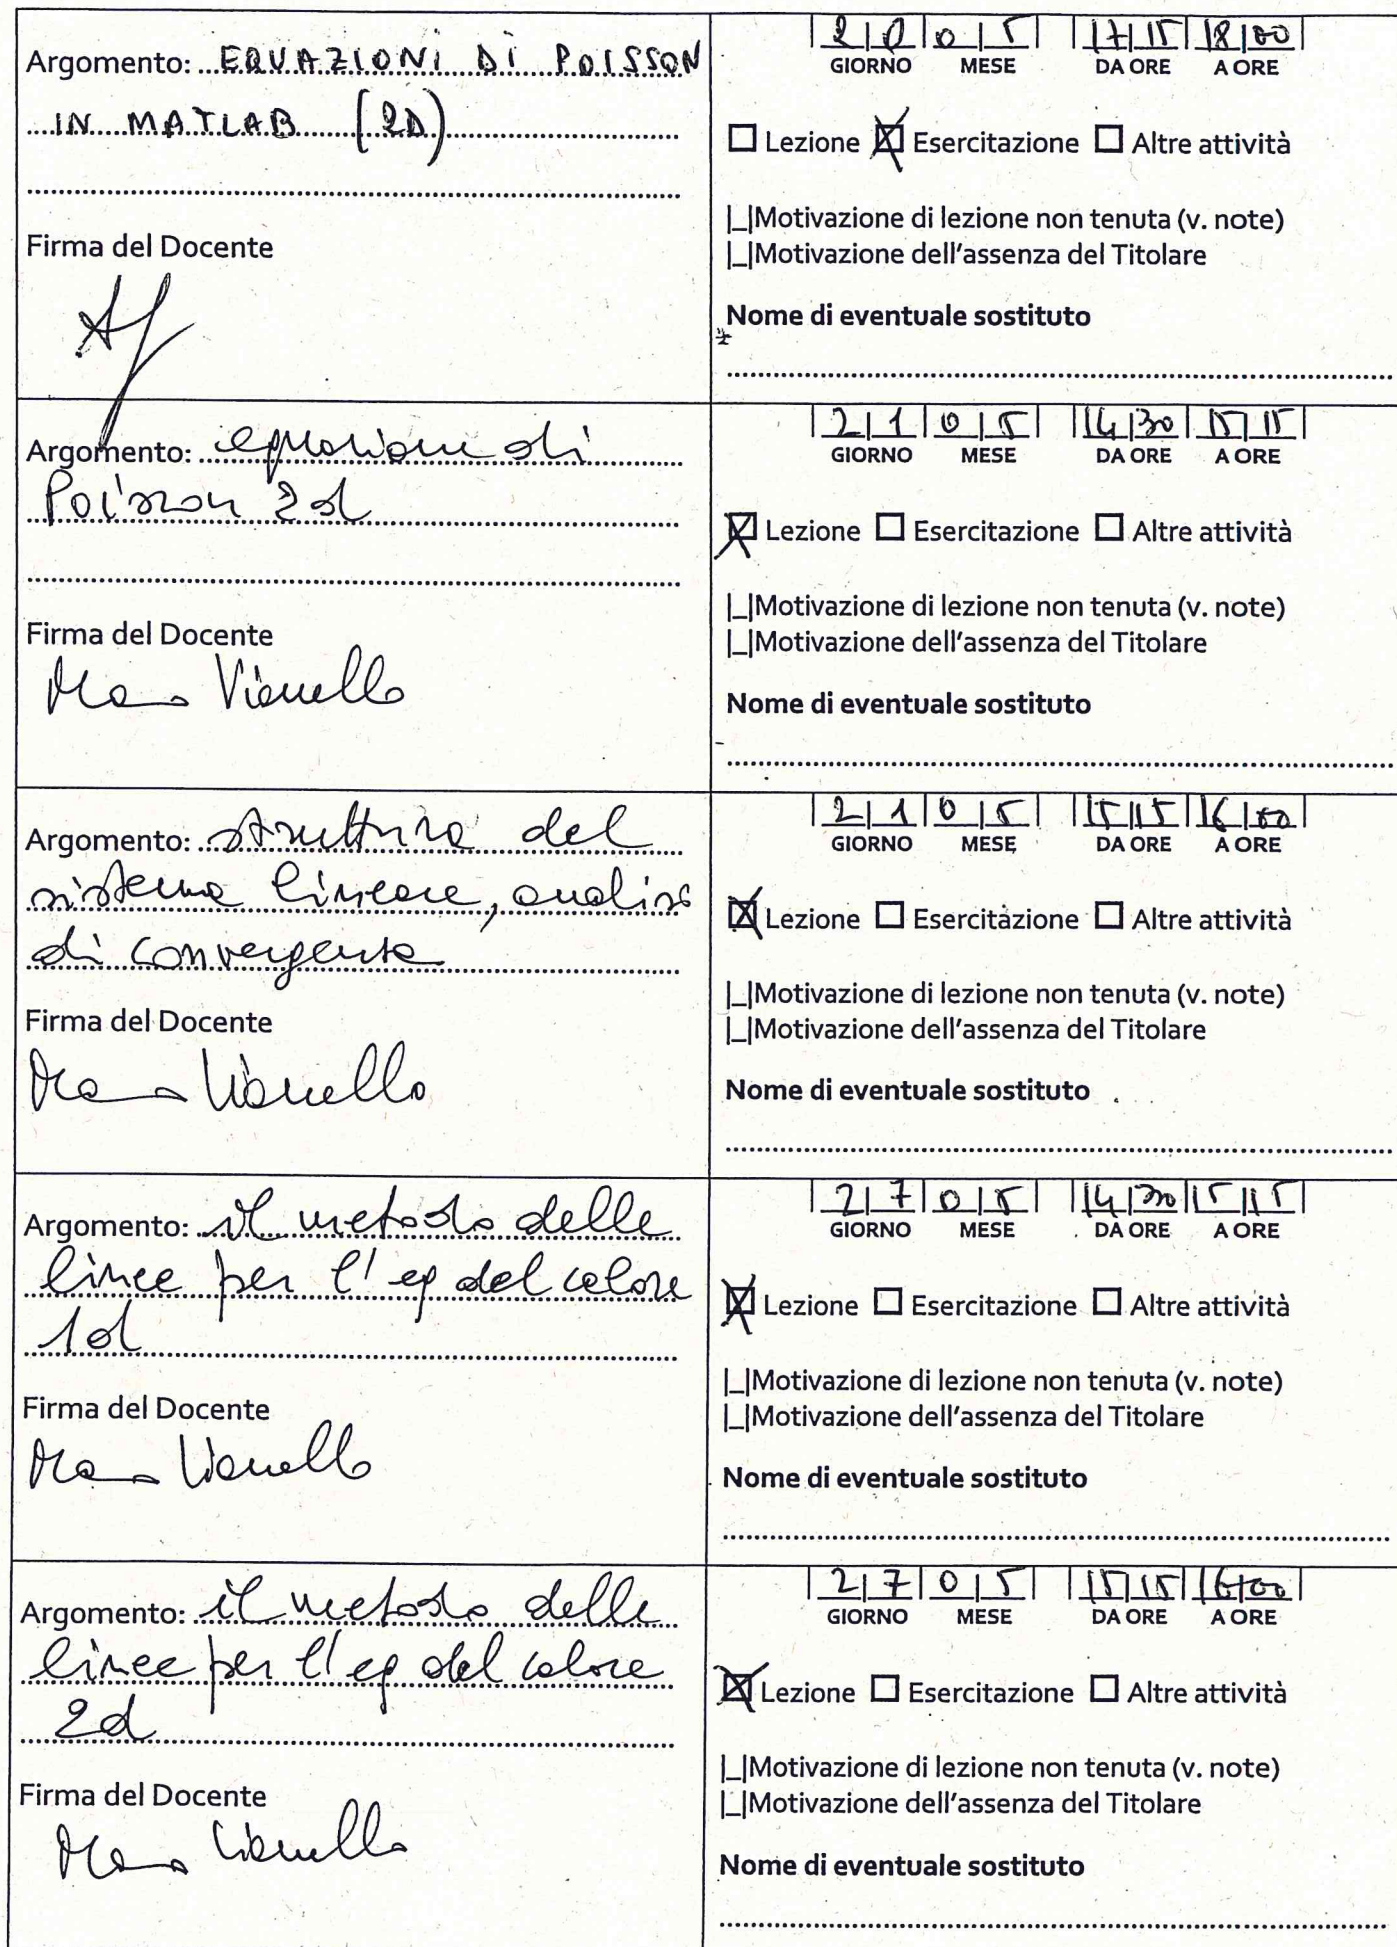 Argomento: EQUAZIONI DI POISSON
IN MATLAB (2D)
Firma del Docente
20 05 17 15 18 00
GIORNO MESE DA ORE A ORE
Lezione Esercitazione Altre attività
|_|Motivazione di lezione non tenuta (v. note)
|_|Motivazione dell'assenza del Titolare
Nome di eventuale sostituto
Argomento: equazione di
Poisson 2d
Firma del Docente
Vianello
21 05 14 30 15 15
GIORNO MESE DA ORE A ORE
Lezione Esercitazione Altre attività
|_|Motivazione di lezione non tenuta (v. note)
|_|Motivazione dell'assenza del Titolare
Nome di eventuale sostituto
Argomento: struttura del
sistema lineare, analisi
di convergenza
Firma del Docente
Vianello
21 05 15 15 16 00
GIORNO MESE DA ORE A ORE
Lezione Esercitazione Altre attività
|_|Motivazione di lezione non tenuta (v. note)
|_|Motivazione dell'assenza del Titolare
Nome di eventuale sostituto
Argomento: il metodo delle
linee per l'eq del calore
1d
Firma del Docente
Vianello
27 05 14 30 15 15
GIORNO MESE DA ORE A ORE
Lezione Esercitazione Altre attività
|_|Motivazione di lezione non tenuta (v. note)
|_|Motivazione dell'assenza del Titolare
Nome di eventuale sostituto
Argomento: il metodo delle
linee per l'eq del calore
2d
Firma del Docente
Vianello
27 05 15 15 16 00
GIORNO MESE DA ORE A ORE
Lezione Esercitazione Altre attività
|_|Motivazione di lezione non tenuta (v. note)
|_|Motivazione dell'assenza del Titolare
Nome di eventuale sostituto